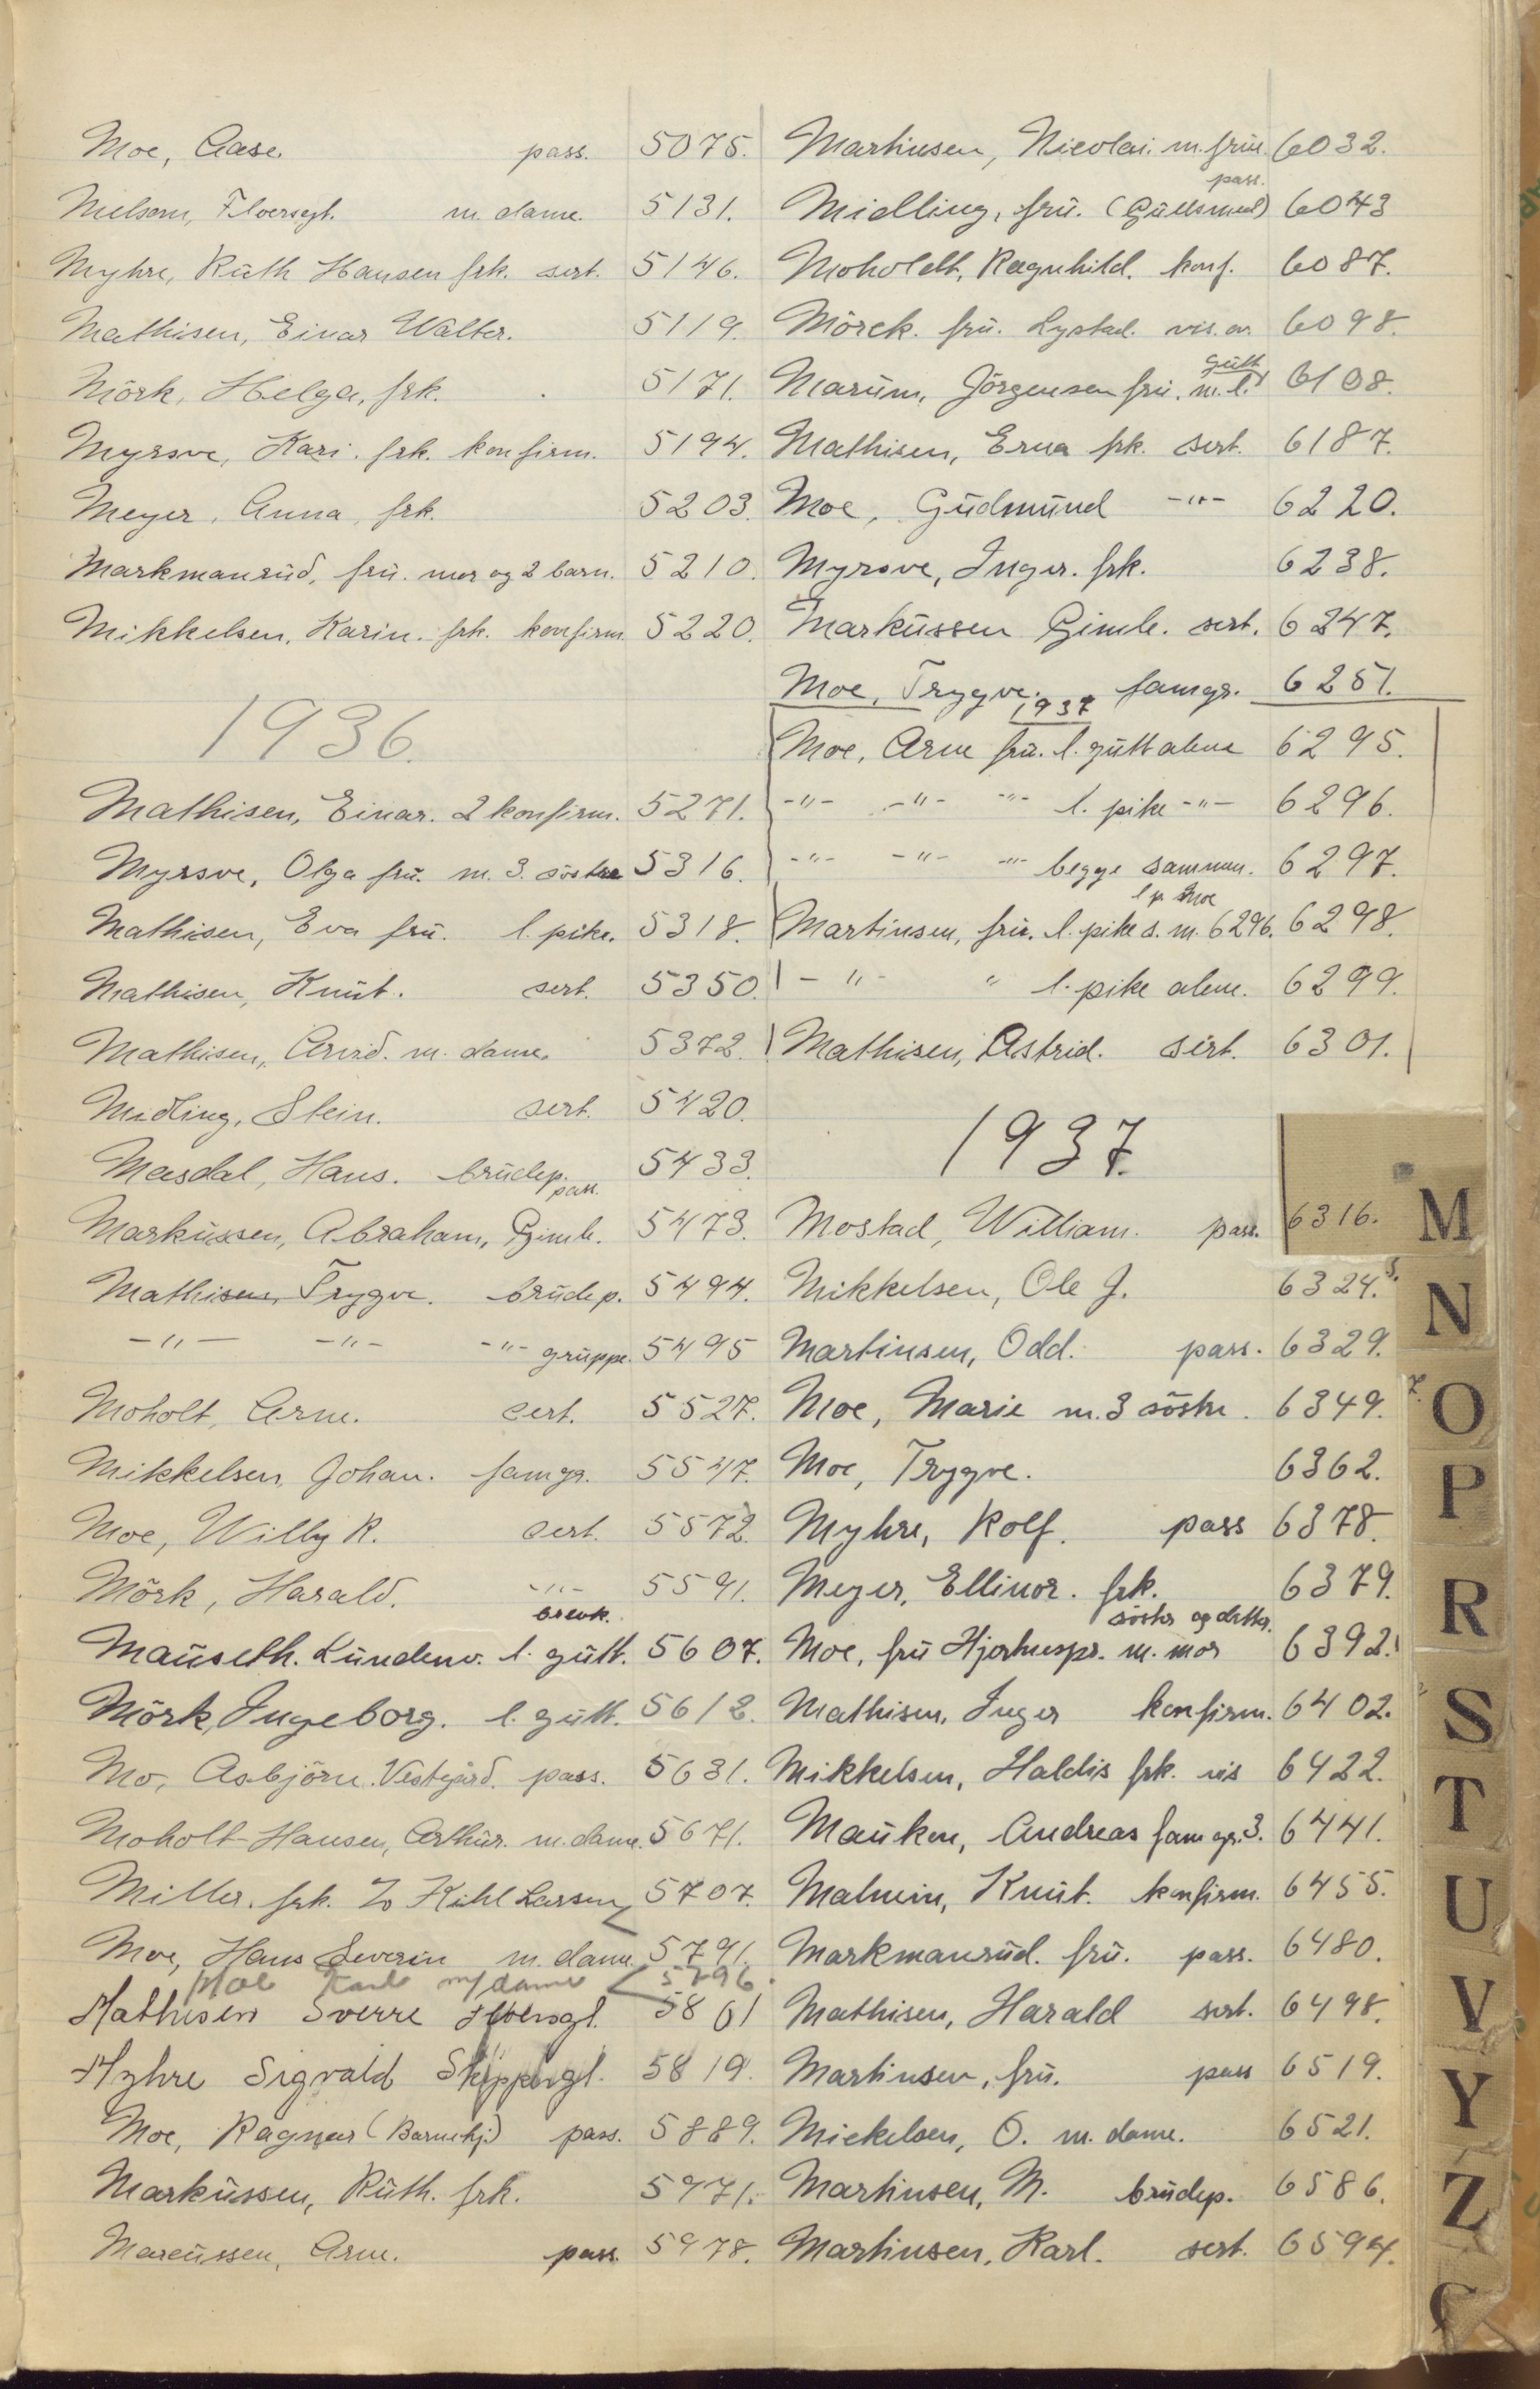 Moe, Aase. pass. 5075.
Nielsen, Flversgt. m. dame. 5131.
Myhre, Ruth Hansen frk. sert. 5146.
Mathisen, Einar Walter. 5119.
Mörk, Helga, frk. 5171.
Myrsve, Kari. frk. konfirm. 5194.
Meyer, Anna, frk. 5203.
Markmanrud, fru. mor og 2 barn. 5210.
Mikkelsen, Karin. frk. konfirm. 5220.
1936.
Mathisen, Einar. 2 konfirm. 5271.
Myrsve, Olga fru. m. 3. söstre 5316.
Mathisen, Eva fru. l. pike. 5318.
Mathisen, Knut. sert. 5350.
Mathisen, Arvid. m. dame. 5372.
Midling, Stein. sert. 5420.
Masdal, Hans. brudep. 5433.
pass.
Markussen, Abraham, Gimle. 5473.
Mathisen, Trygve. brudep. 5494.
-"- -"- -"- gruppe. 5495
Moholt, Arne. sert. 5527.
Mikkelsen, Johan. famgr. 5547.
Moe, Willy R. sert. 5572.
Mörk, Harald. -"- 5591.
brevk.
Mauseth. Lundenv. l. gutt. 5607.
Mörk, Ingeborg. l. gutt. 5612.
Mo, Asbjörn. Vestegård. pass. 5631.
Moholt-Hansen, Arthur. m. dame. 5671.
Miller, frk. Kihl Larsen 5707.
Moe, Hans Severin m. dame. 5791.
Moe Karl m/dame 5796.
Mathisen Sverre 5801
Myhre Sigvald Skippergt. 5819.
Moe, Ragnar (Barnehj.) pass. 5889.
Markussen, Ruth. frk. 5971.
Marcussen, Arne. pass. 5978.
Martinsen, Nicolai. m. fru. 6032.
pass.
Midling, fru. (Gullsmed) 6043
Moholdt, Ragnhild. konf. 6087.
Mörck. fru. Lystad. vis. av. 6098.
gutt
Marum, Jörgensen fru. m. l. 6108.
Mathisen, Erna frk. sert. 6187.
Moe, Gudmund -"- 6220.
Myrsve, Inger. frk. 6238.
Markussen Gimle. sert. 6247.
Moe, Trygve. famgr. 6251.
1937
Moe, Arne fru. l. gutt alene 6295.
-"- -"- -"- l. pike -"- 6296.
-"- -"- -"- begge sammen. 6297.
l p Moe
Martinsen, fru. l. pike s. m. 6296. 6298.
-"- " l. pike alene. 6299.
Mathisen, Astrid. sert. 6301.
1937.
Mostad, William. pass. 6316.
Mikkelsen, Ole J. 6324.
Martinsen, Odd. pass. 6329.
Moe, Marie m. 3 söstre. 6349.
Moe, Trygve. 6362.
Myhre, Rolf. pass 6378.
Meyer, Ellinor. frk. 6379.
söster og datter.
Moe, fru Hjortnespr. m. mor 6392.
Mathisen, Inger konfirm. 6402.
Mikkelsen, Haldis frk. vis 6422.
Mauken, Andreas fam gr. 3. 6441.
Malmin, Knut. konfirm. 6455.
Markmanrud. fru. pass. 6480.
Mathisen, Harald sert. 6498.
Martinsen, fru. pass 6519.
Mickelsen, O. m. dame. 6521.
Martinsen, M. brudep. 6586.
Martinsen, Karl. sert. 6594.
M
N
O
P
R
S
T
U
V
Y
Z